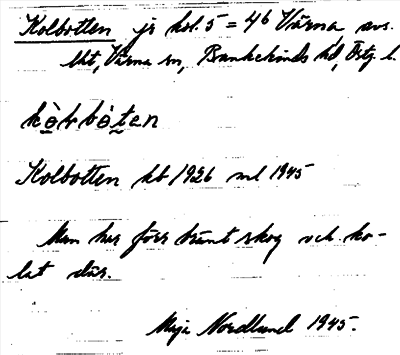 Kolbotten js kol. 5 = 4b Värna avs.
lht, Värna sn, Bankekinds hd, Östg. l.
Kolbotten kb 1926 ml 1945
Man har förr bränt skog och ko-
lat där.
Maja Nordlund 1945.